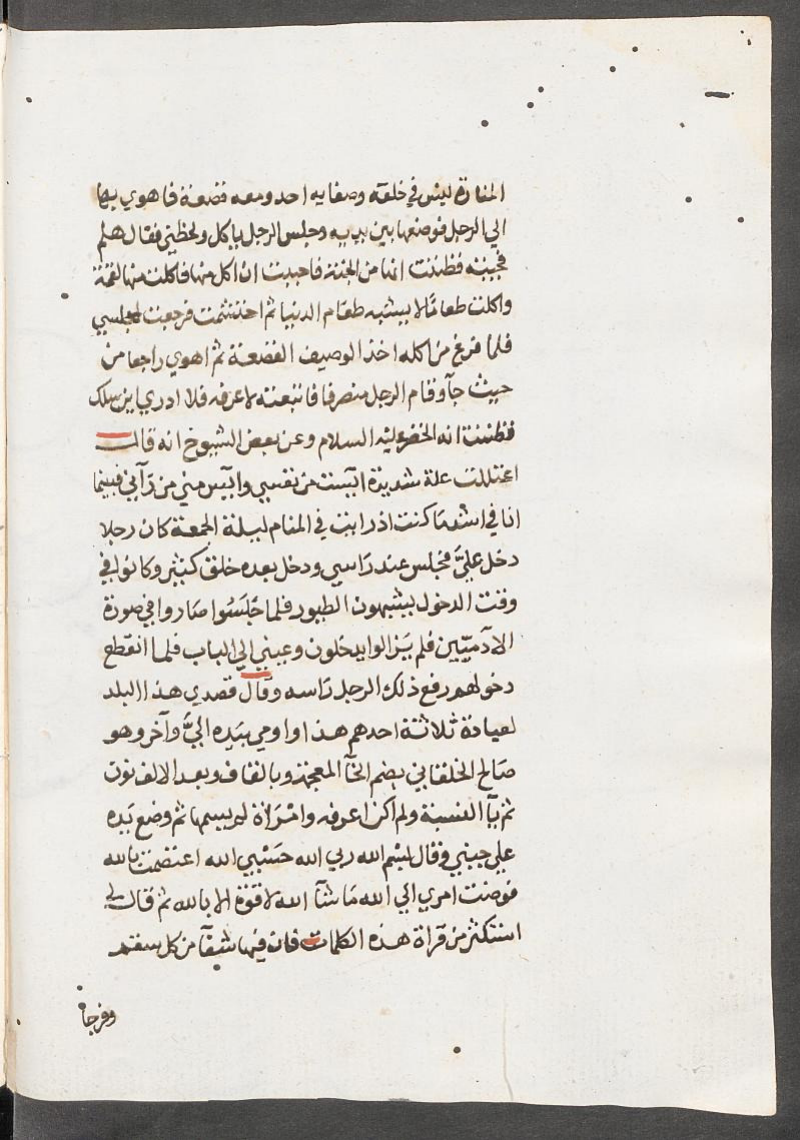 المنارة ليس في خلقه وصفايه احد ومعه قصعة فاهوي بها
الي الرجل فوضعها بين يديه وجلس الرجل ياكل ولحظني فقال هلم
فجيته فظننت انها من الجنة فاحببت ان اكل منها فاكلت منها لقمة
واكلت طعامًا لا يشبه طعام الدنيا ثم احتشمت فرجعت لمجلسي
فلما فرغ من اكله اخذ الوصيف القصعة ثم اهوي راجعا من
حيث جآ وقام الرجل منصرفا فاتبعته لاعرفه فلا ادري اين سلك
فظننت انه الخضر عليه السلام وعن بعض الشيوخ انه قال
اعتللت علة شديدة ايست من نفسي وايس مني من رآني فبينما
انا في اشد ما كنت اذ رايت في المنام ليلة الجمعة كان رجلا
دخل عليَّ فجلس عند راسي ودخل بعده خلق كثير وكانوا في
وقت الدخول يشبهون الطيور فلما جلسوا صاروا في صورة
الادميّين فلم يزالوا يدخلون وعيني الي الباب فلما انقطع
دخولهم رفع ذلك الرجل راسه وقال قصدي هذا البلد
لعيادة ثلاثة احدهم هذا واومي بيده اليَّ وآخر وهو
صالح الخلقاني بضم الخآ المعجمة وبالقاف وبعد الالف نون
ثم يآ النسبة ولم اكن اعرفه وامراة لم يسمها ثم وضع يده
علي جبيني وقال بسم الله ربي الله حسبي الله اعتصمت بالله
فوضت امري الي الله ما شآ الله لا قوة الا بالله ثم قال لي
استكثر من قراة هذه الكلمات فان فيها شفآ من كل سقم
وفرجا